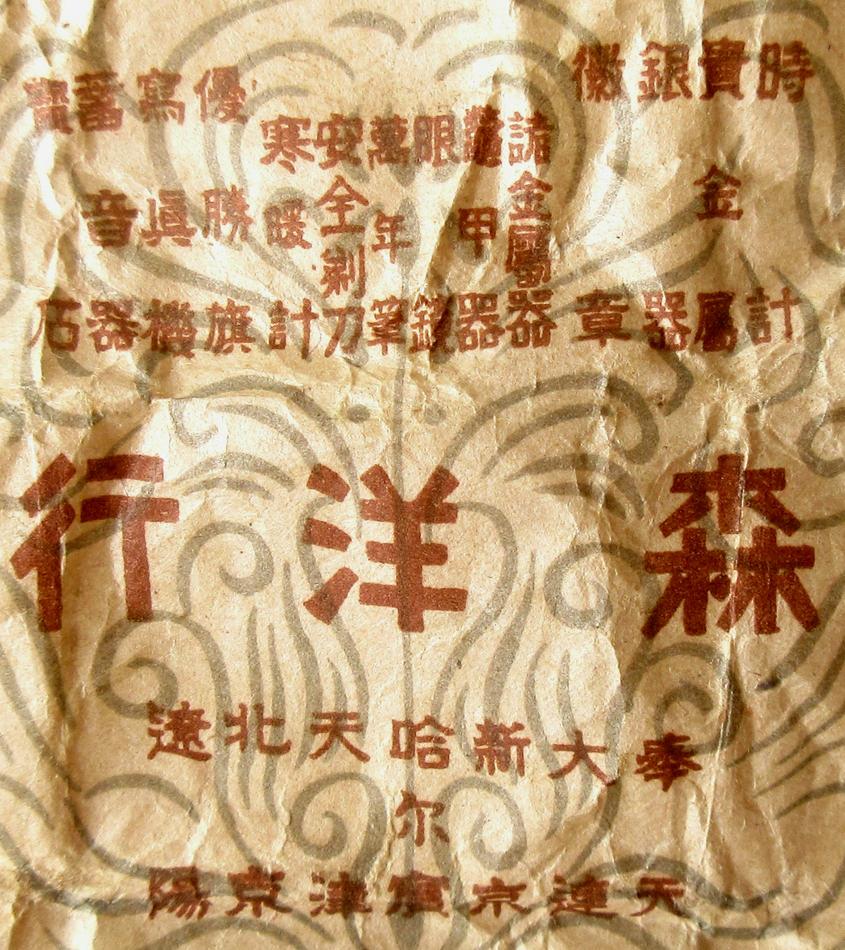 時計
貴金属
銀器
徽章
諸金屬器
鼈甲器
眼鏡
萬年筆
安全剃刀
寒暖計
優勝旗
寫眞機
蓄音器
寶石
森洋行
奉天
大連
新京
哈尔賓
天津
北京
遼陽